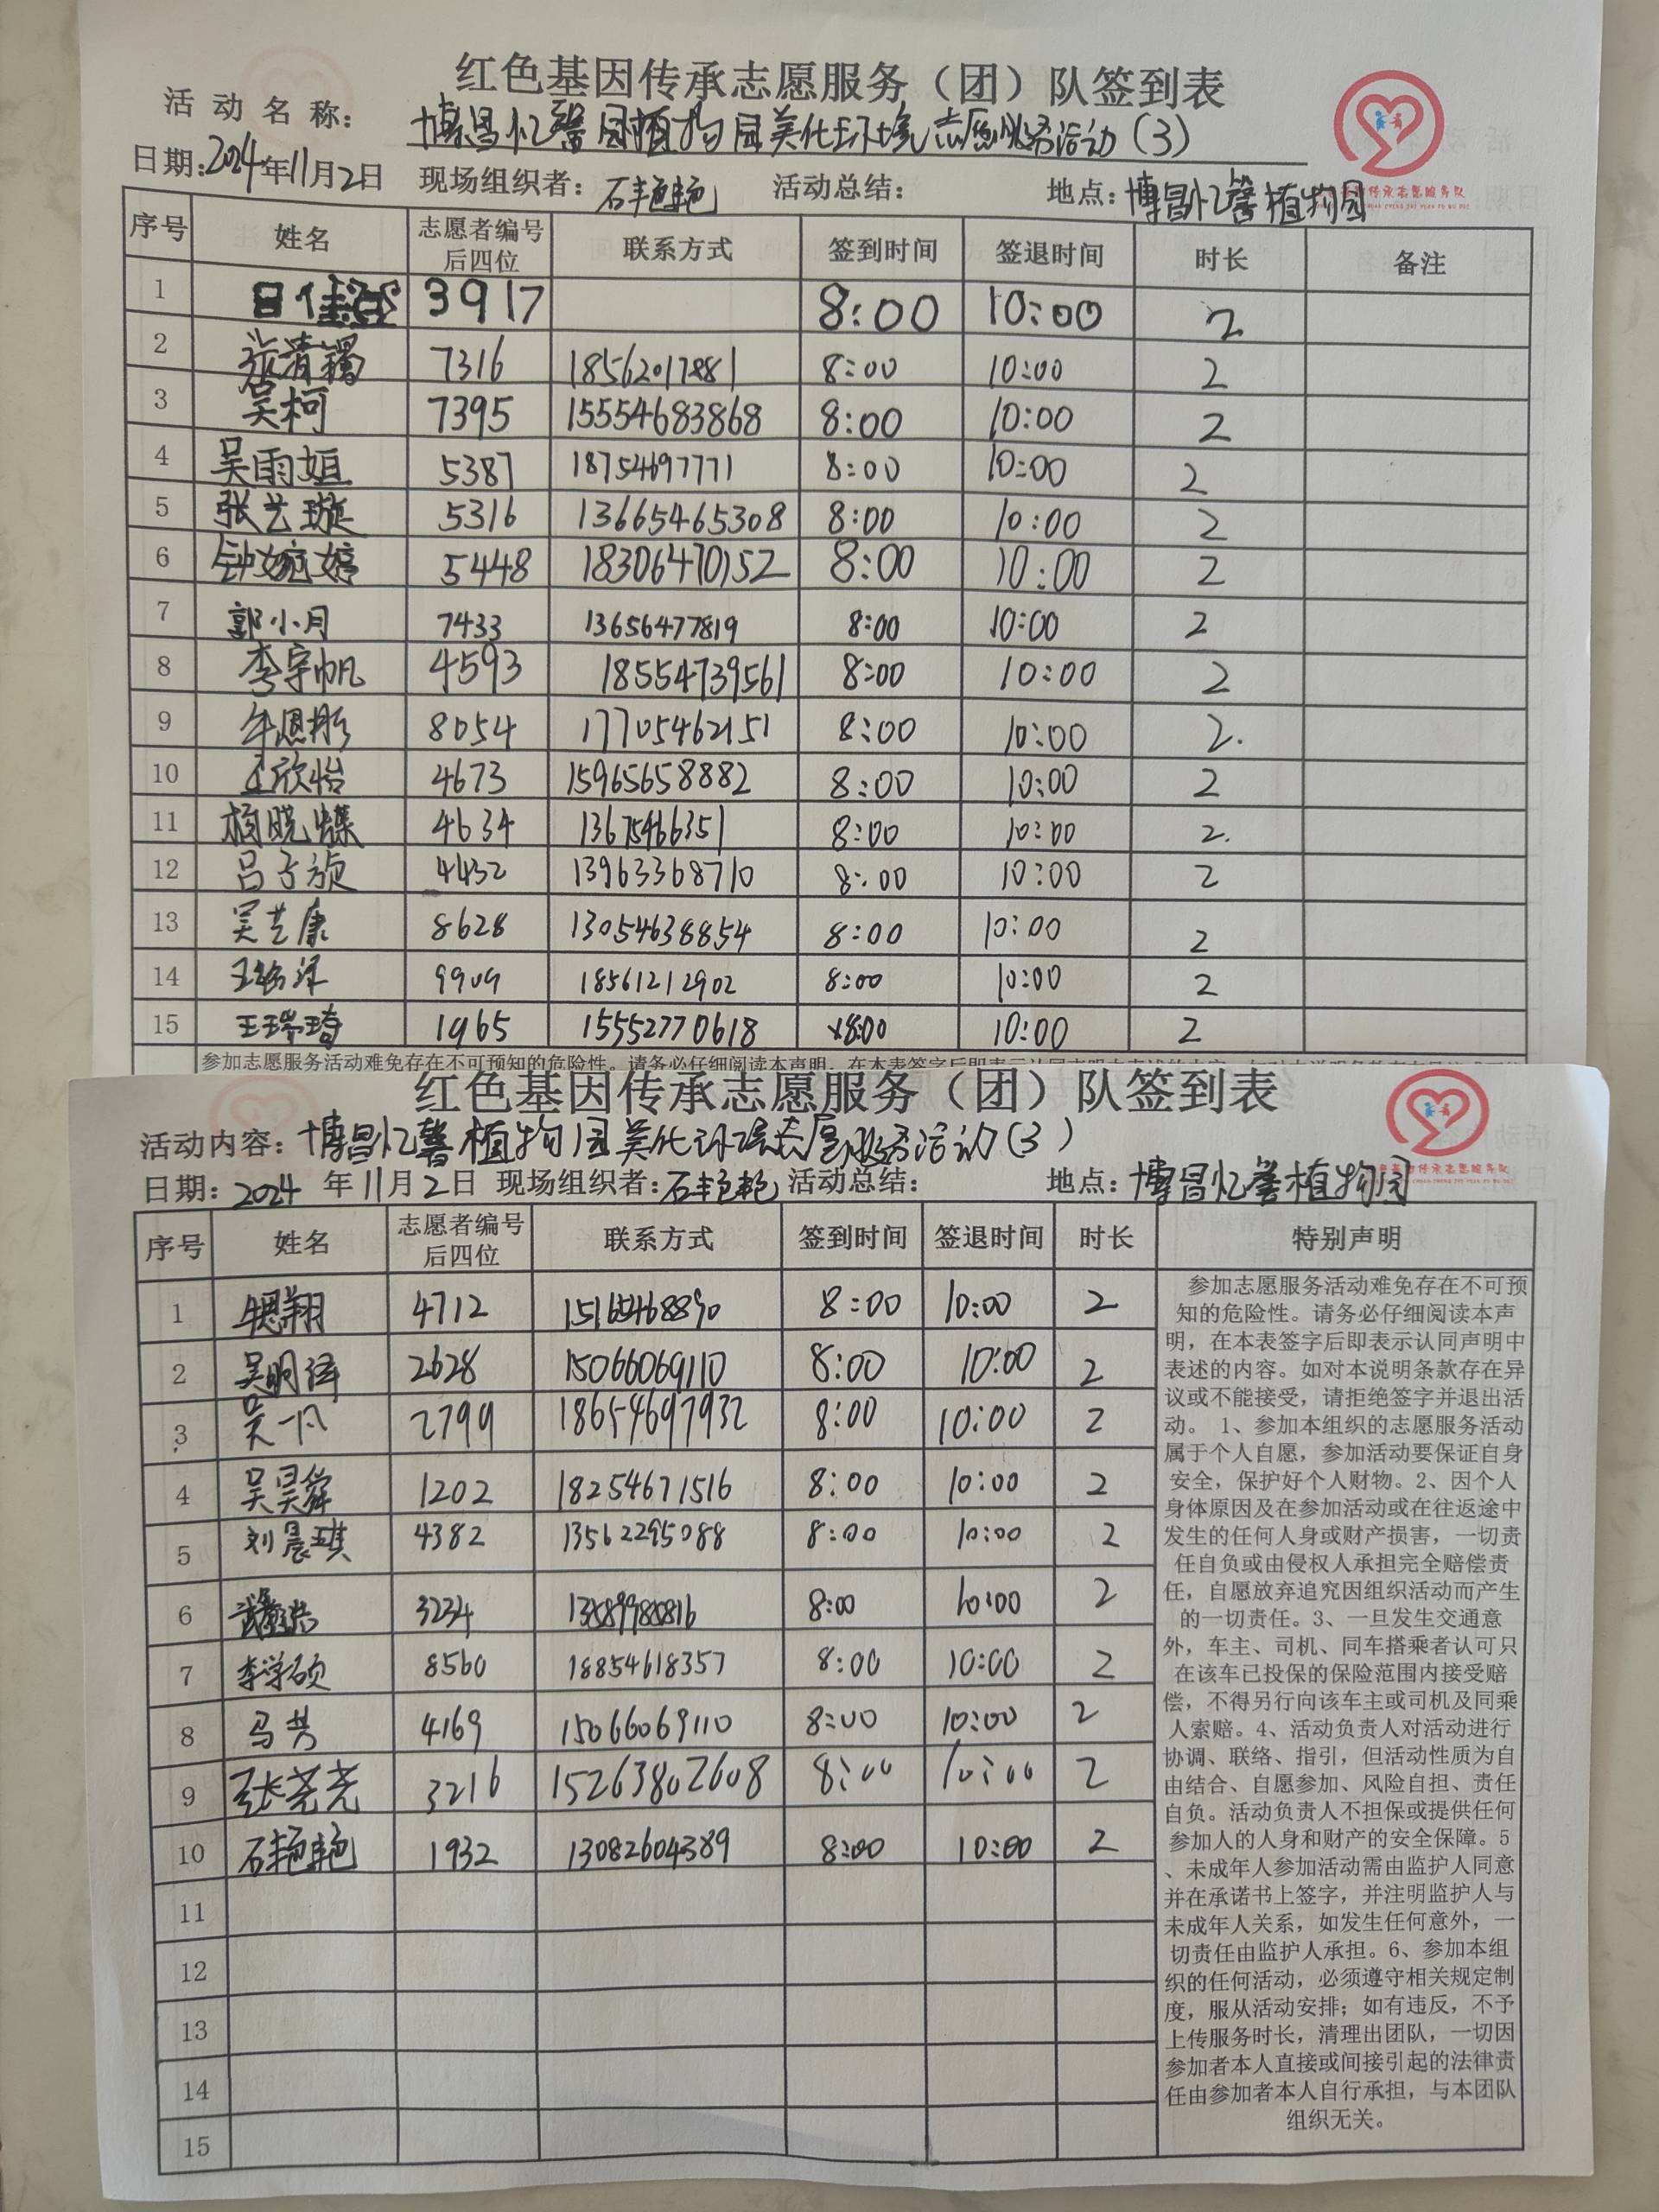 红色基因传承志愿服务（团）队签到表
活动名称： 博昌忆馨园植物园美化环境志愿服务活动(3)
日期：2024年11月2日 现场组织者：石艳艳 活动总结： 地点：博昌忆馨植物园
序号 姓名 志愿者编号后四位 联系方式 签到时间 签退时间 时长 备注
1 3917 8:00 10:00 2
2 张清镯 7316 18562017881 8:00 10:00 2
3 吴柯 7395 15554683868 8:00 10:00 2
4 吴雨姮 5387 18754697771 8:00 10:00 2
5 张艺璇 5316 13665465308 8:00 10:00 2
6 钟婉婷 5448 18306470152 8:00 10:00 2
7 郭小月 7433 13656477819 8:00 10:00 2
8 李宇帆 4593 18554739561 8:00 10:00 2
9 牟恩彤 8054 17705462151 8:00 10:00 2.
10 孟欣怡 4673 15965658882 8:00 10:00 2
11 杨晓蝶 4634 13675466351 8:00 10:00 2.
12 吕子旋 4432 13963368710 8:00 10:00 2
13 吴艺康 8628 13054638854 8:00 10:00 2
14 9909 18561212902 8:00 10:00 2
15 王瑞琦 1965 15552770618 8:00 10:00 2
参加志愿服务活动难免存在不可预知的危险性。请务必仔细阅读本声明，在本表签字后即表示认同声明中表述的内容。
红色基因传承志愿服务（团）队签到表
活动内容：博昌忆馨植物园美化环境志愿服务活动(3)
日期：2024年11月2日 现场组织者：石艳艳 活动总结： 地点：博昌忆馨植物园
序号 姓名 志愿者编号后四位 联系方式 签到时间 签退时间 时长 特别声明
1 4712 15165468890 8:00 10:00 2
2 吴明泽 2628 15066069110 8:00 10:00 2
3 吴一凡 2799 18654697932 8:00 10:00 2
4 吴昊舜 1202 18254671516 8:00 10:00 2
5 刘晨琪 4382 13562295088 8:00 10:00 2
6 3234 8:00 10:00 2
7 李学硕 8560 18854618357 8:00 10:00 2
8 马芳 4169 15066069110 8:00 10:00 2
9 张尧尧 3216 15263802608 8:00 10:00 2
10 石艳艳 1932 13082604389 8:00 10:00 2
11
12
13
14
15
参加志愿服务活动难免存在不可预
知的危险性。请务必仔细阅读本声
明，在本表签字后即表示认同声明中
表述的内容。如对本说明条款存在异
议或不能接受，请拒绝签字并退出活
动。 1、参加本组织的志愿服务活动
属于个人自愿，参加活动要保证自身
安全，保护好个人财物。2、因个人
身体原因及在参加活动或在往返途中
发生的任何人身或财产损害，一切责
任自负或由侵权人承担完全赔偿责
任，自愿放弃追究因组织活动而产生
的一切责任。3、一旦发生交通意
外，车主、司机、同车搭乘者认可只
在该车已投保的保险范围内接受赔
偿，不得另行向该车主或司机及同乘
人索赔。4、活动负责人对活动进行
协调、联络、指引，但活动性质为自
由结合、自愿参加、风险自担、责任
自负。活动负责人不担保或提供任何
参加人的人身和财产的安全保障。5
、未成年人参加活动需由监护人同意
并在承诺书上签字，并注明监护人与
未成年人关系，如发生任何意外，一
切责任由监护人承担。6、参加本组
织的任何活动，必须遵守相关规定制
度，服从活动安排；如有违反，不予
上传服务时长，清理出团队，一切因
参加者本人直接或间接引起的法律责
任由参加者本人自行承担，与本团队
组织无关。